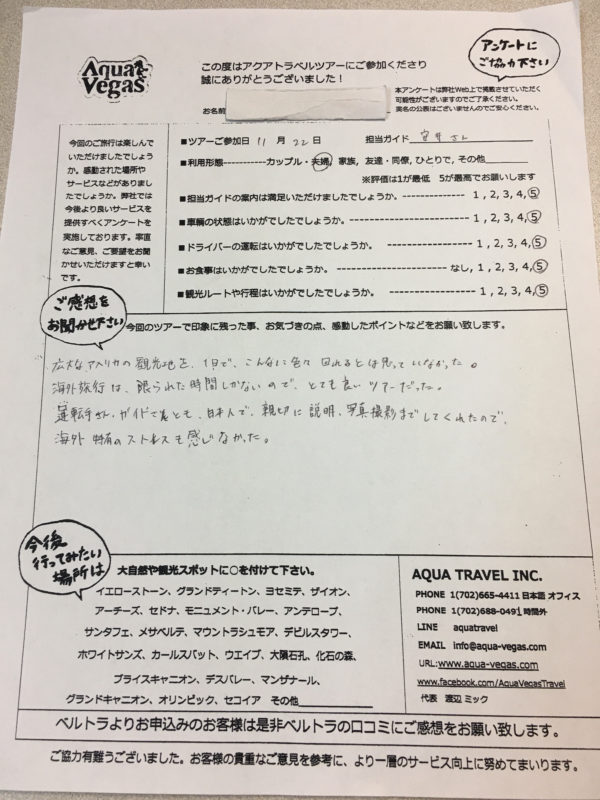 Aqua Vegas
この度はアクアトラベルツアーにご参加くださり
誠にありがとうございました！
アンケートに
ご協力下さい
本アンケートは弊社Web上で掲載させていただく
可能性がございますのでご了承ください。
実名の公表はございませんのでご安心ください。
お名前
今回のご旅行は楽しんで
いただけましたでしょう
か。感動された場所や
サービスなどがありまし
たでしょうか。弊社では
今後より良いサービスを
提供すべくアンケートを
実施しております。率直
なご意見、ご要望をお聞
かせいただけますと幸い
です。
■ツアーご参加日 11 月 22 日 担当ガイド さん
■利用形態-----------カップル・夫婦, 家族, 友達・同僚, ひとりで, その他
※評価は1が最低 5が最高でお願いします
■担当ガイドの案内は満足いただけましたでしょうか。--------------- 1 , 2, 3, 4, 5
■車輌の状態はいかがでしたでしょうか。-------------------- 1 , 2, 3, 4, 5
■ドライバーの運転はいかがでしたでしょうか。 --------------- 1 , 2, 3, 4, 5
■お食事はいかがでしたでしょうか。 ------------------- なし, 1 , 2, 3, 4, 5
■観光ルートや行程はいかがでしたでしょうか。 --------------- 1 , 2, 3, 4, 5
ご感想を
お聞かせ下さい
今回のツアーで印象に残った事、お気づきの点、感動したポイントなどをお願い致します。
広大なアメリカの観光地を、1日で、こんなに色々回れるとは思っていなかった。
海外旅行は、限られた時間しかないので、とても良いツアーだった。
運転手さん、ガイドさんとも、日本人で、親切に説明、写真撮影までしてくれたので、
海外特有のストレスも感じなかった。
今後
行ってみたい
場所は
大自然や観光スポットに○を付けて下さい。
イエローストーン、グランドティートン、ヨセミテ、ザイオン、
アーチーズ、セドナ、モニュメント・バレー、アンテロープ、
サンタフェ、メサベルテ、マウントラシュモア、デビルスタワー、
ホワイトサンズ、カールスバット、ウエイブ、大隕石孔、化石の森、
ブライスキャニオン、デスバレー、マンザナール、
グランドキャニオン、オリンピック、セコイア その他
AQUA TRAVEL INC.
PHONE 1(702)665-4411 日本語 オフィス
PHONE 1(702)688-0491 時間外
LINE aquatravel
EMAIL info@aqua-vegas.com
URL:www.aqua-vegas.com
www.facebook.com/AquaVegasTravel
代表 渡辺 ミック
ベルトラよりお申込みのお客様は是非ベルトラの口コミにご感想をお願い致します。
ご協力有難うございました。お客様の貴重なご意見を参考に、より一層のサービス向上に努めてまいります。